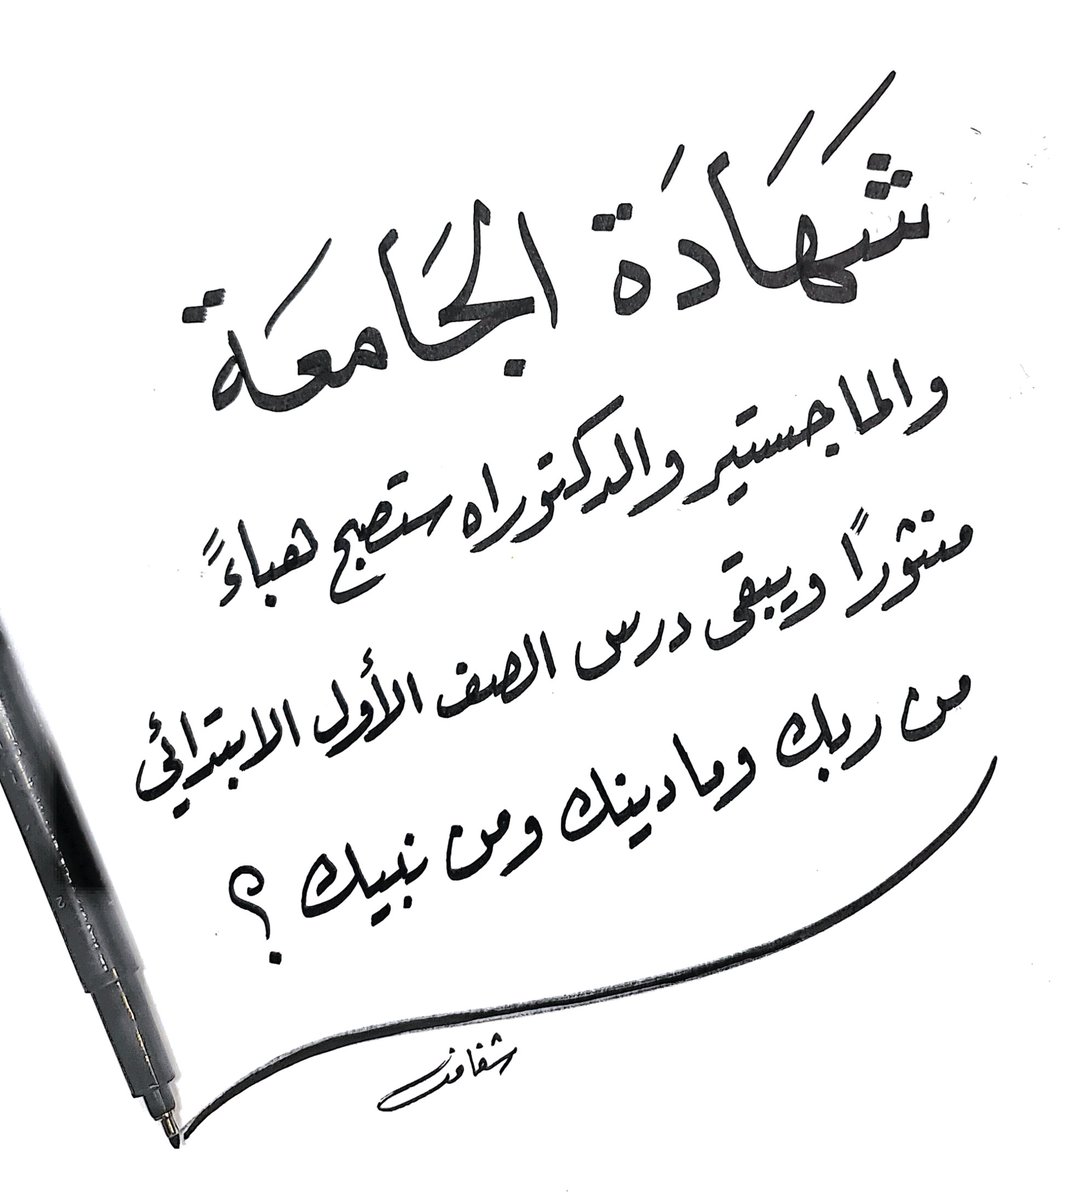 شَهَادَة الجَامعَة
والماجستير والدكتوراه ستصبح هباءً
منثورًا ويبقى درس الصف الأول الابتدائي
من ربك وما دينك ومن نبيك ؟
شفافت